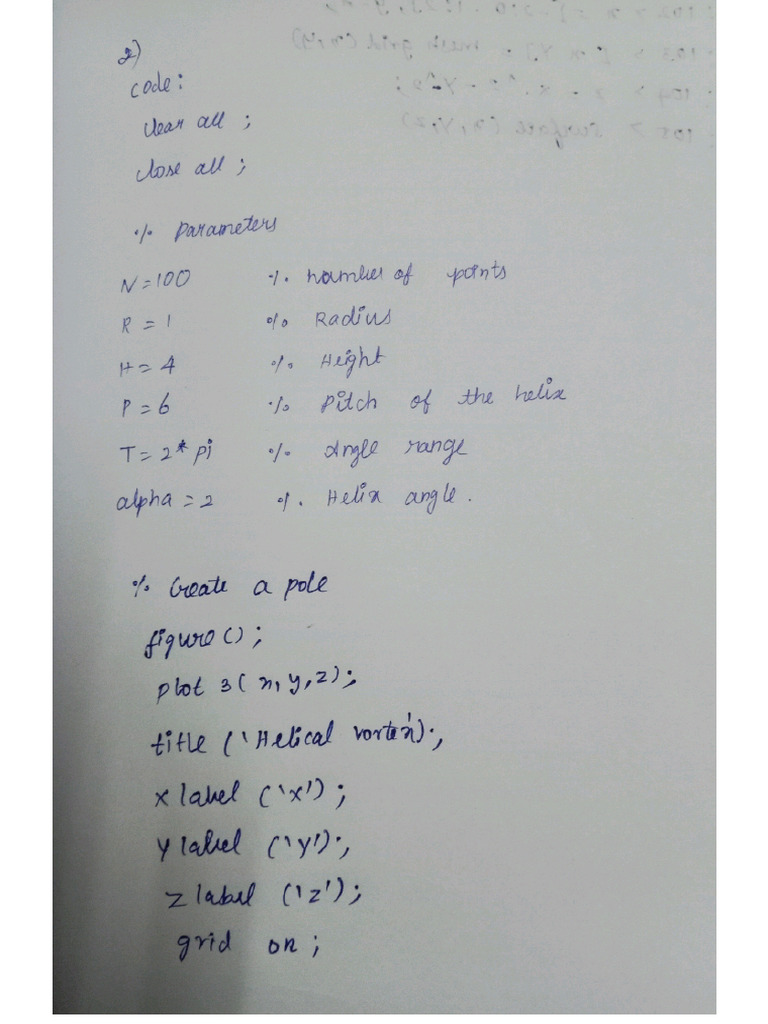 2)
code:
clear all ;
close all ;
% Parameters
N=100 % number of points
R = 1 % Radius
H = 4 % Height
P = 6 % Pitch of the helix
T = 2* pi % Angle range
alpha = 2 % Helix angle.
% Create a pole
figure ();
plot 3( x, y, z);
title ('Helical vortex');
x label ('x');
y label ('y');
z label ('z');
grid on ;